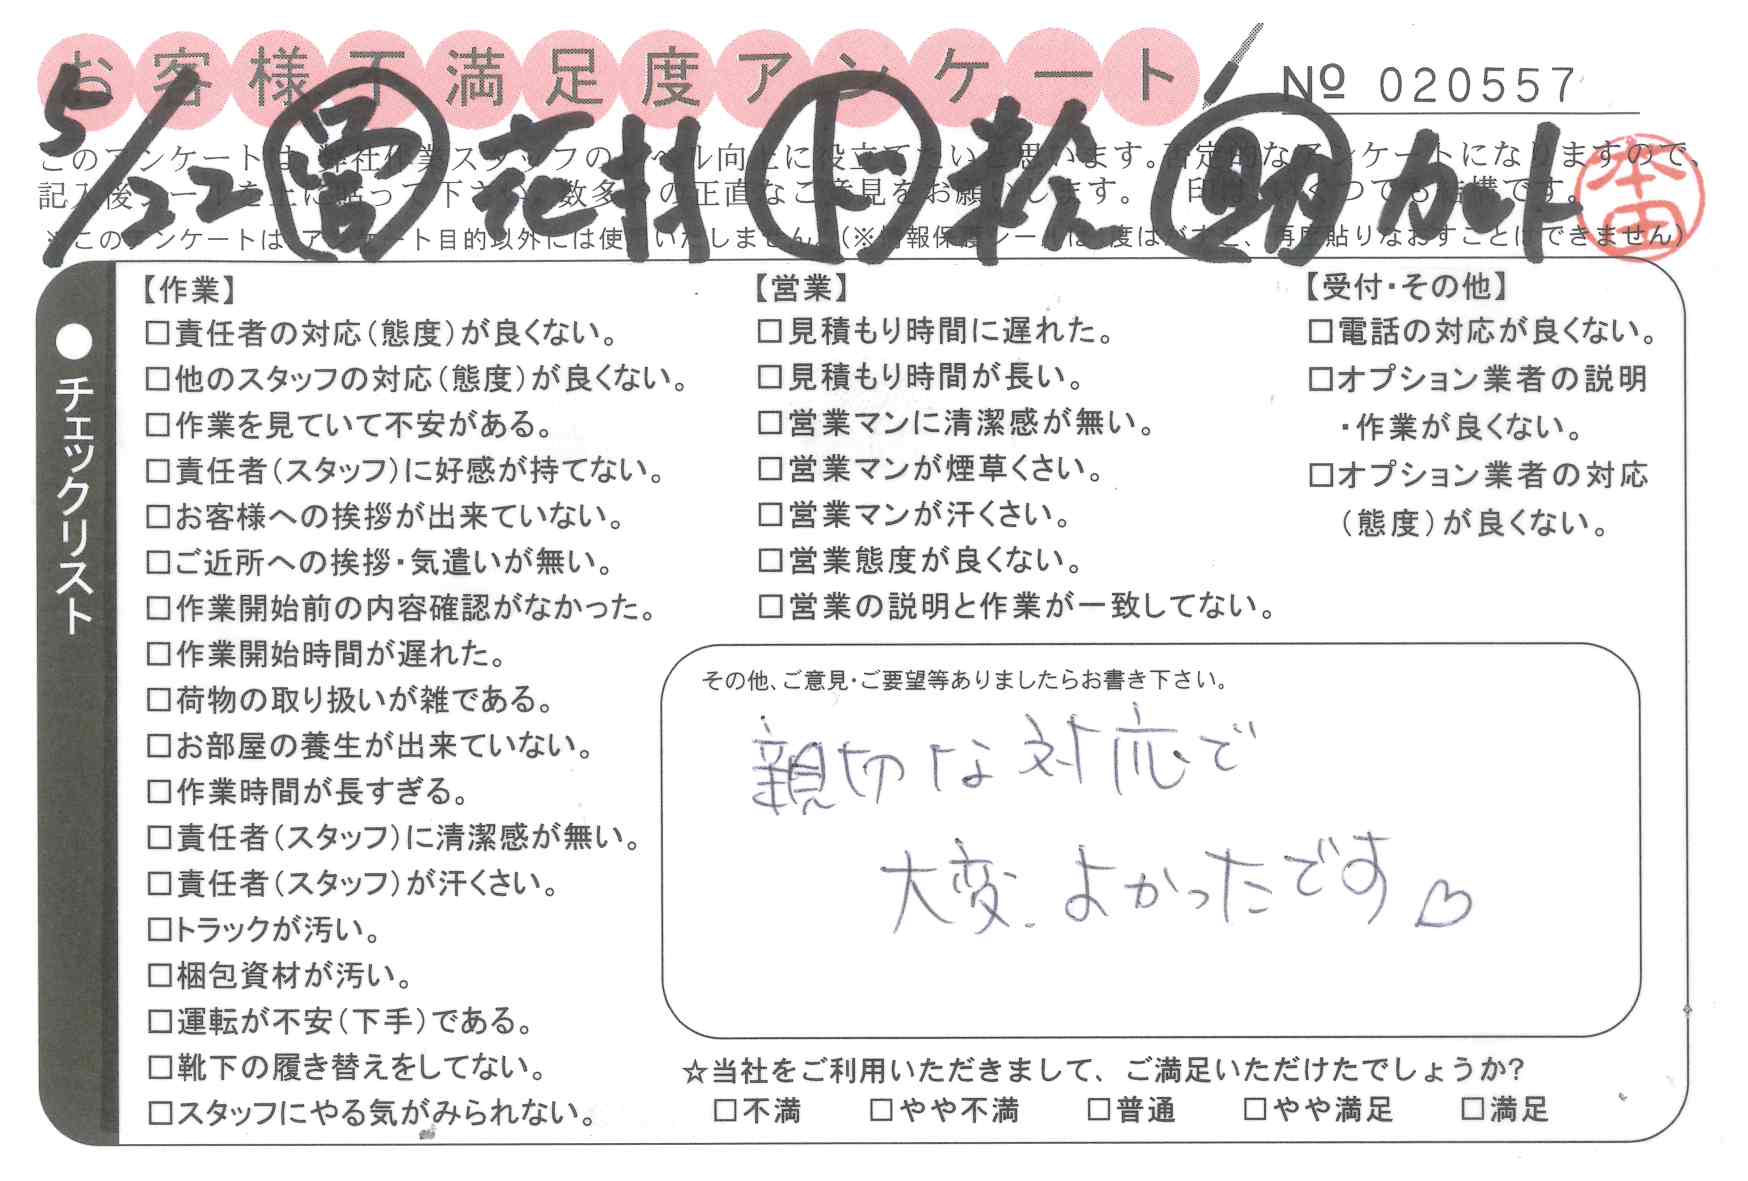 お客様不満足度アンケート
№ 020557
5/22 営 花村 ド 松 助 カット
本田
このアンケートは、弊社作業スタッフのレベル向上に役立てたいと思います。否定的なアンケートになりますので、
記入後シールを上に貼って下さい。数多くの正直なご意見をお願いします。✓印は、いくつでも結構です。
※このアンケートは、アンケート目的以外には使用いたしません。(※情報保護シールは1度はがすと、再度貼りなおすことはできません)
●チェックリスト
【作業】
□責任者の対応(態度)が良くない。
□他のスタッフの対応(態度)が良くない。
□作業を見ていて不安がある。
□責任者(スタッフ)に好感が持てない。
□お客様への挨拶が出来ていない。
□ご近所への挨拶・気遣いが無い。
□作業開始前の内容確認がなかった。
□作業開始時間が遅れた。
□荷物の取り扱いが雑である。
□お部屋の養生が出来ていない。
□作業時間が長すぎる。
□責任者(スタッフ)に清潔感が無い。
□責任者(スタッフ)が汗くさい。
□トラックが汚い。
□梱包資材が汚い。
□運転が不安(下手)である。
□靴下の履き替えをしてない。
□スタッフにやる気がみられない。
【営業】
□見積もり時間に遅れた。
□見積もり時間が長い。
□営業マンに清潔感が無い。
□営業マンが煙草くさい。
□営業マンが汗くさい。
□営業態度が良くない。
□営業の説明と作業が一致してない。
【受付・その他】
□電話の対応が良くない。
□オプション業者の説明
・作業が良くない。
□オプション業者の対応
(態度)が良くない。
その他、ご意見・ご要望等ありましたらお書き下さい。
親切な対応で
大変よかったです♡
☆当社をご利用いただきまして、ご満足いただけたでしょうか?
□不満 □やや不満 □普通 □やや満足 □満足